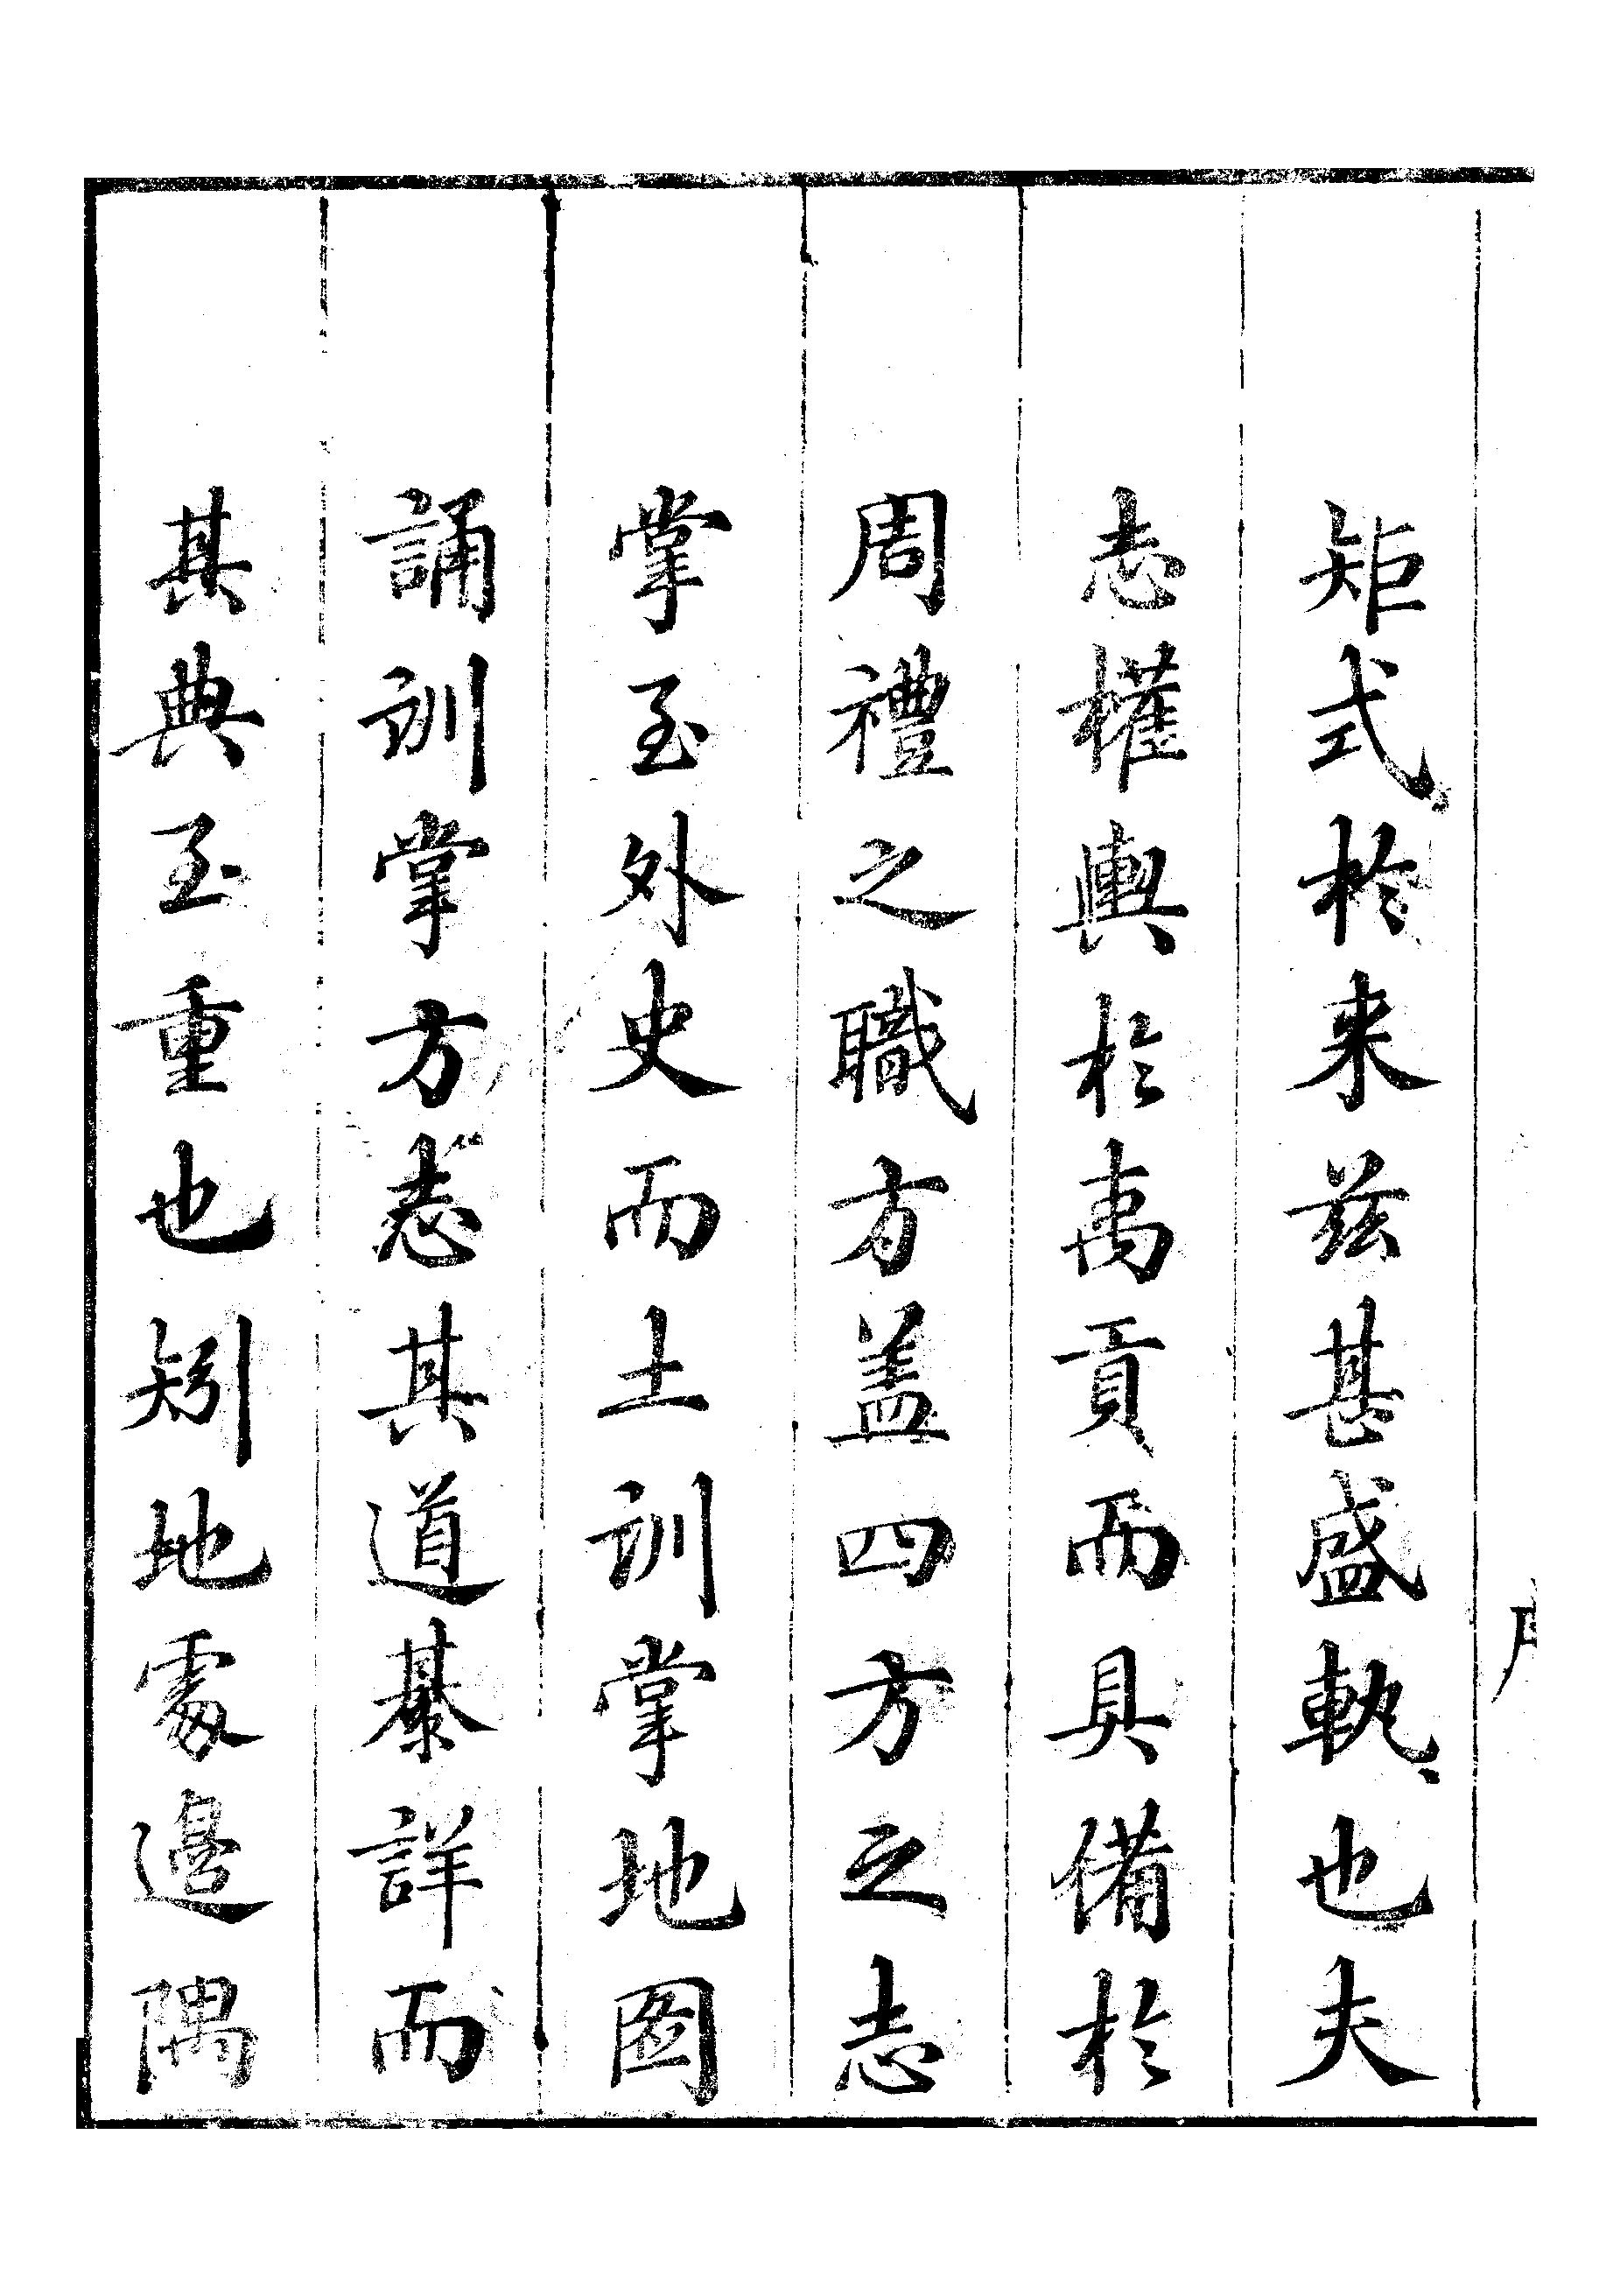 矩式於来兹甚盛執也夫
志權輿於禹貢而具備於
周禮之職方盖四方之志
掌至外史而土訓掌地圖
誦訓掌方志其道綦詳而
其典至重也矧地處邊隅